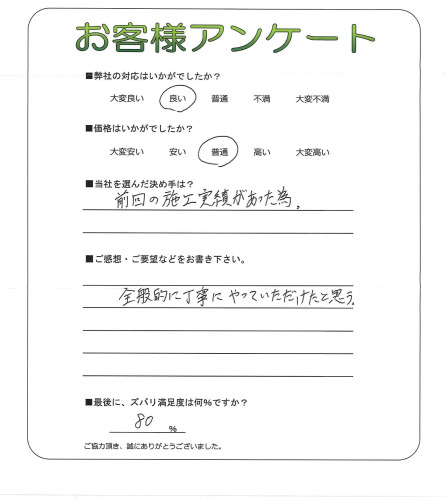 お客様アンケート
■弊社の対応はいかがでしたか？
大変良い 良い 普通 不満 大変不満
■価格はいかがでしたか？
大変安い 安い 普通 高い 大変高い
■当社を選んだ決め手は？
前回の施工実績があった為。
■ご感想・ご要望などをお書き下さい。
全般的に丁寧にやっていただけたと思う。
■最後に、ズバリ満足度は何％ですか？
80 ％
ご協力頂き、誠にありがとうございました。